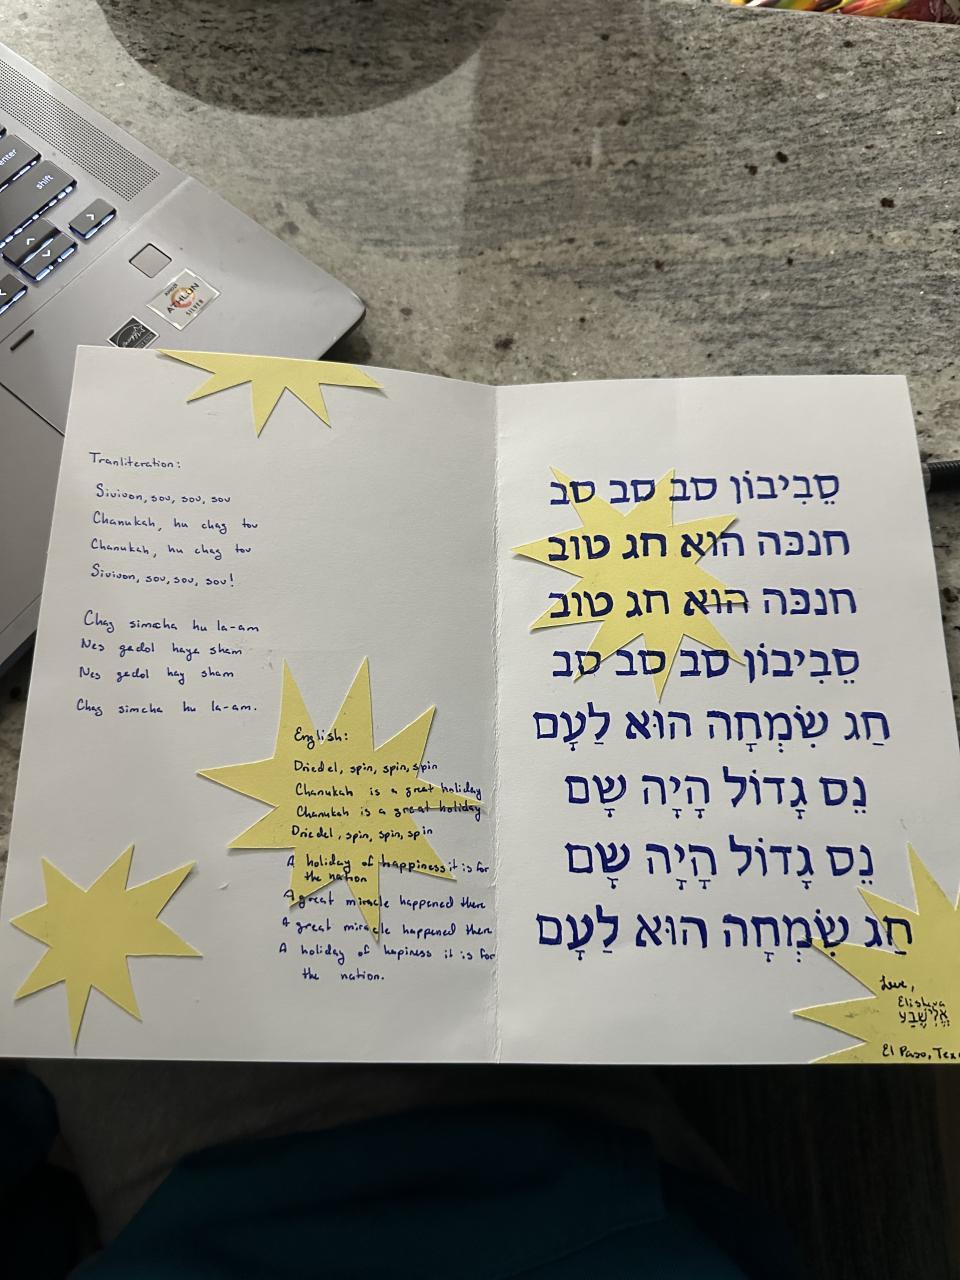 enter
shift
AMD
ATHLON
SILVER
Tranliteration:
Sivivon, sov, sov, sov
Chanukah, hu chag tov
Chanukah, hu chag tov
Sivivon, sov, sov, sov!
Chag simcha hu la-am
Nes gadol haya sham
Nes gadol hay sham
Chag simcha hu la-am.
English:
Driedel, spin, spin, spin
Chanukah is a great holiday
Chanukah is a great holiday
Driedel, spin, spin, spin
A holiday of happiness it is for
the nation
A great miracle happened there
A great miracle happened there
A holiday of hapiness it is for
the nation.
סֵבִיבוֹן סב סב סב
חנכּה הוא חג טוב
חנכּה הוא חג טוב
סֵבִיבוֹן סב סב סב
חַג שִׂמְחָה הוּא לַעָם
נֵס גָדוֹל הָיָה שָם
נֵס גָדוֹל הָיָה שָם
חַג שִׂמְחָה הוּא לַעָם
Love,
Elisheva
אֱלִישֶׁבַע
El Paso, Tex